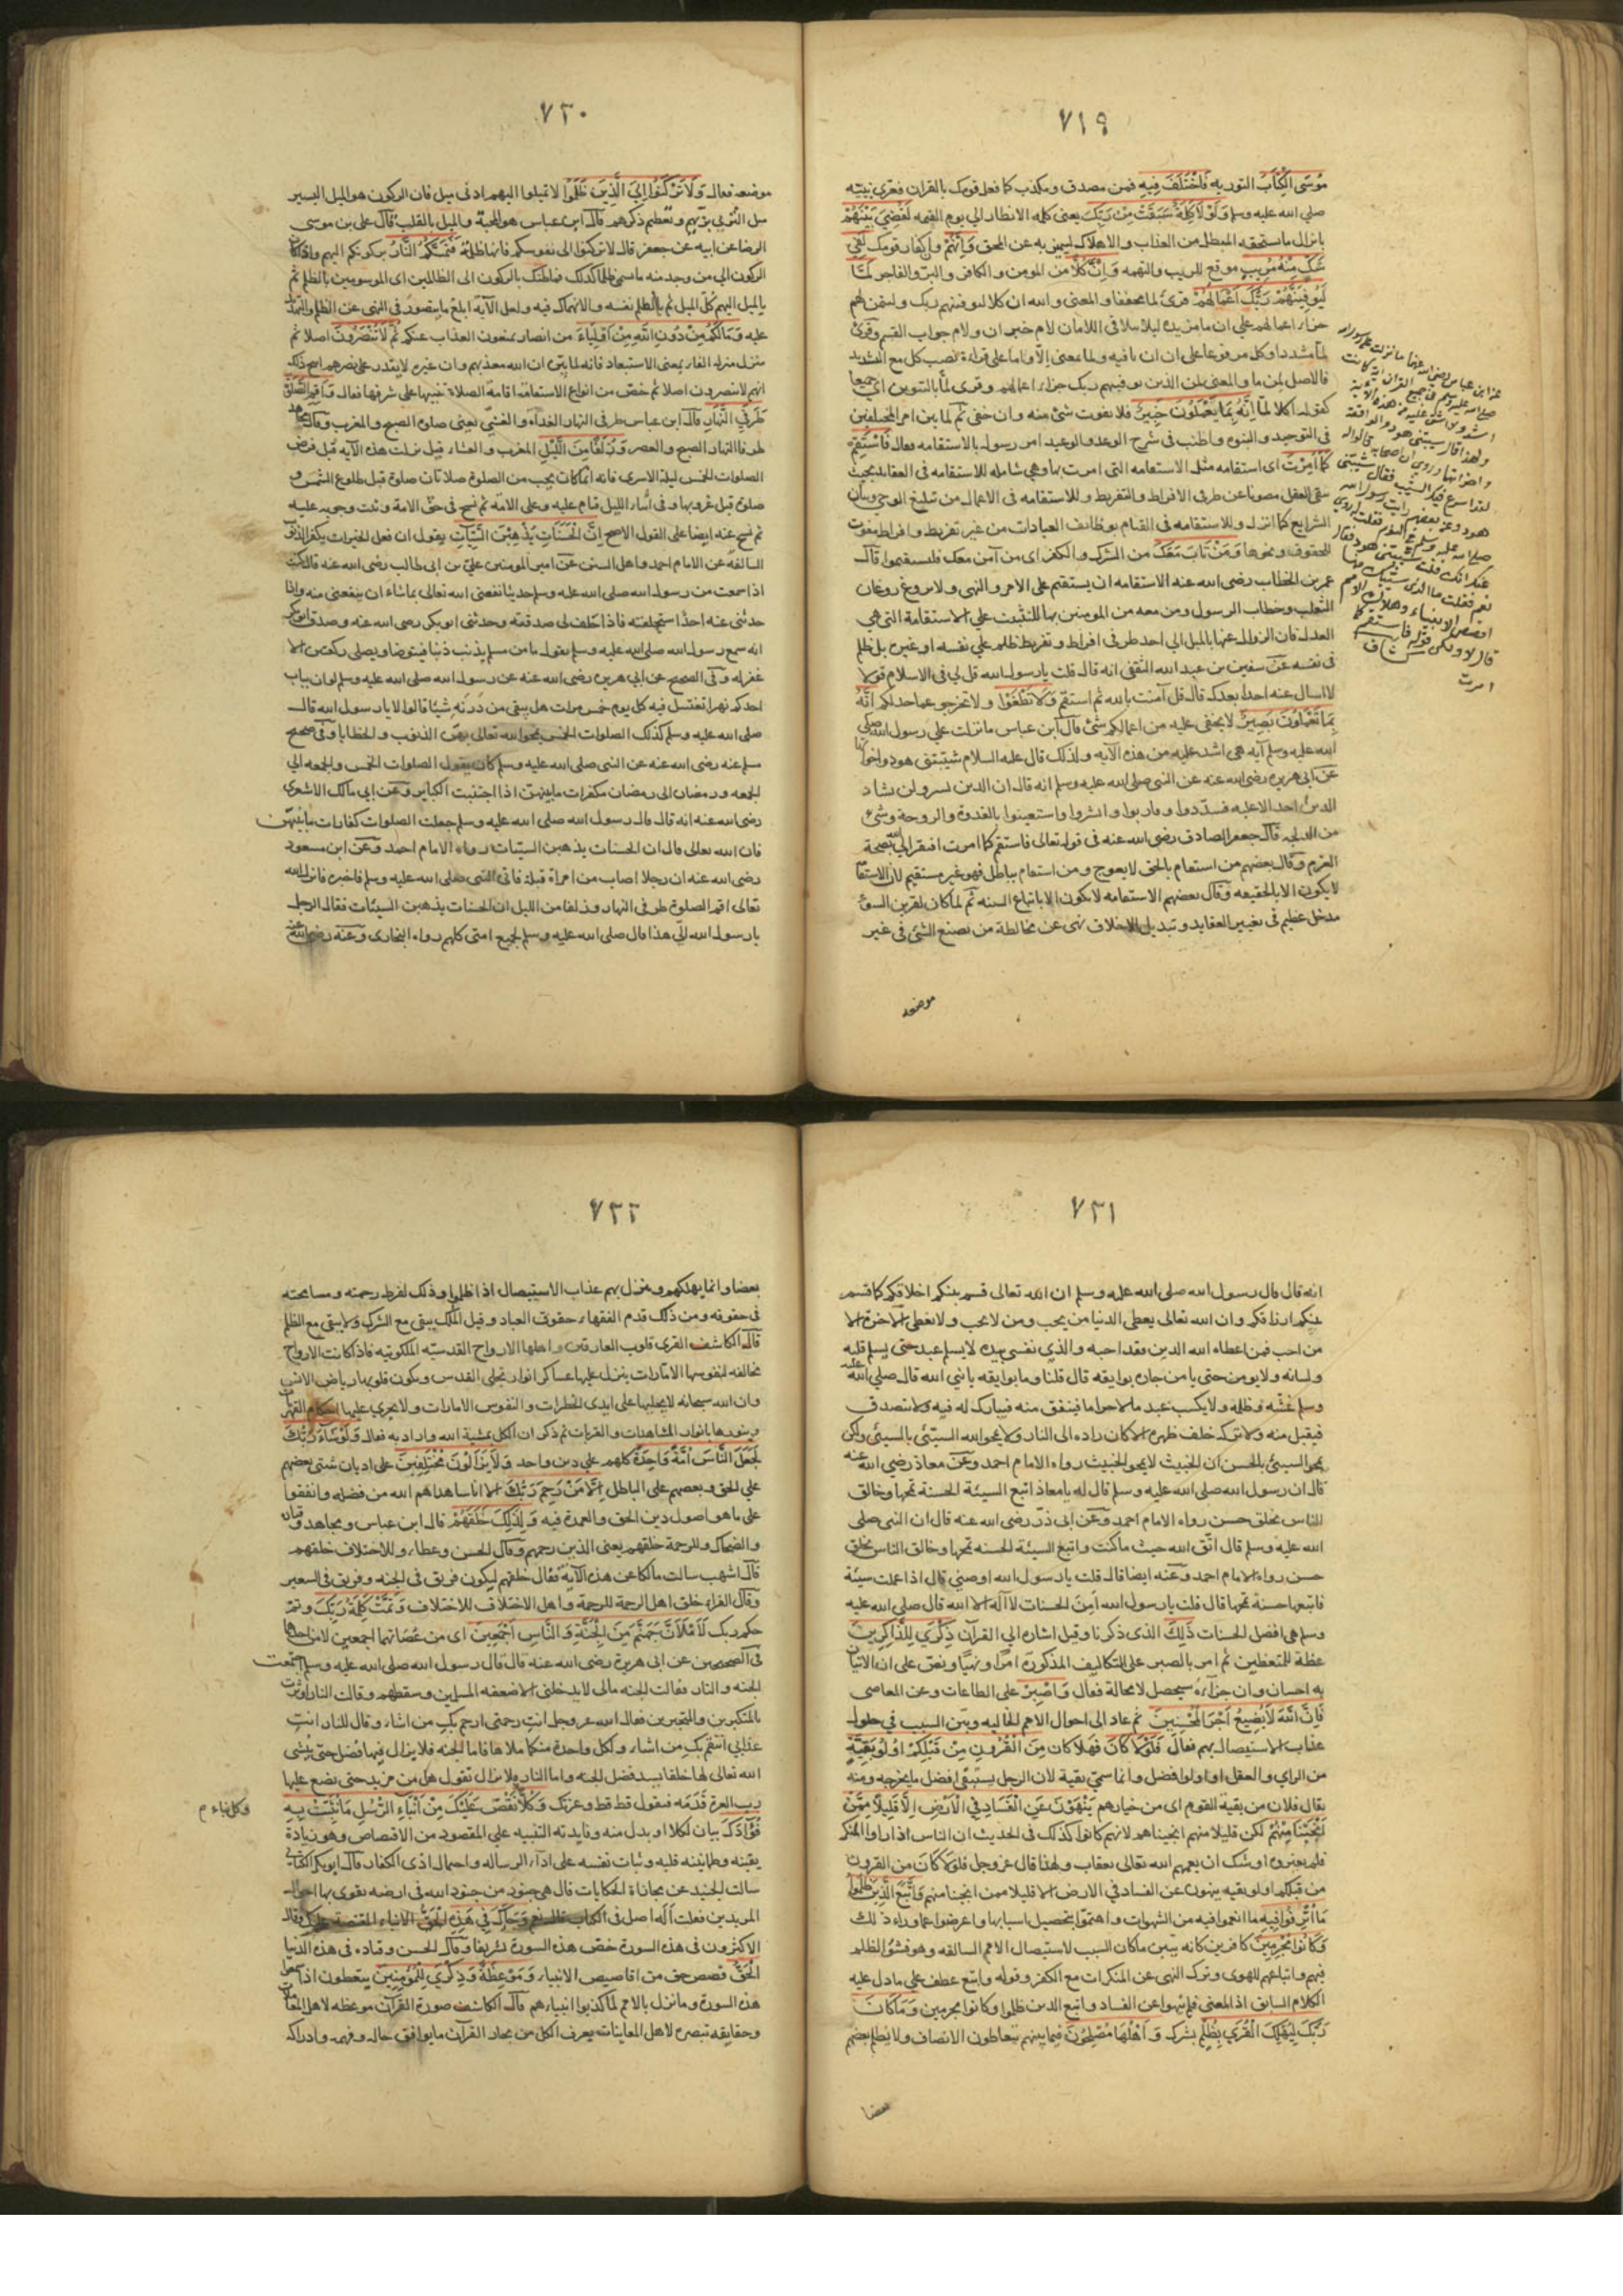 ٧١٩
موسى الكتاب التوريه فاختلف فيه فمن مصدق ومكذب كما فعل قومك بالقران فعزى نبيه
صلى الله عليه وسلم ولولا كلمة سبقت من ربك يعنى كلمه الانظار الى يوم القيمه لقضى بينهم
بانزال ما يستحقه المبطل من العذاب والاهلاك ليميز به عن المحق وانهم وان كفار قومك لفى
شك منه مريب موقع للريب والتهمه وان كلا من المومن والكافر والبر والفاجر لما
ليوفينهم ربك اعمالهم قرئ لما مخففا والمعنى والله ان كلا ليوفينهم ربك
جزاء اعمالهم على ان ما مزيده ليلا يتلاقى اللامان لام خبر ان ولام جواب القسم وقرئ
لما مشددا وكل مرفوعا على ان ان نافيه ولما بمعنى الا واما على قراءة نصب كل مع التشديد
فالاصل لمن ما والمعنى لمن الذين يوفينهم ربك جزاء اعمالهم وقرى لما بالتنوين اى جميعا
كقوله اكلا لما انه بما يعملون خبير فلا يفوت شئ منه وان خفى ثم لما بين امر المختلفين
فى التوحيد والنبوه واطنب فى شرح الوعد والوعيد امر رسوله بالاستقامه فقال فاستقم
كما امرت اى استقامه مثل الاستقامه التى امرت بها وهى شامله للاستقامه فى العقايد بحيث
يبقى العقل مصونا عن طرفى الافراط والتفريط وللاستقامه فى الاعمال من تبليغ الوحى وبيان
الشرايع كما انزل وللاستقامه فى القيام بوظائف العبادات من غير تفريط وافراط مفوت
للحقوق ونحوها ومن تاب معك من الشرك والكفر اى من آمن معك فليستقيموا قال
عمر بن الخطاب رضى الله عنه الاستقامه ان يستقيم على الامر والنهى ولا يروغ روغان
الثعلب وخطاب الرسول ومن معه من المومنين بها للتثبيت على الاستقامة التى هى
العدل فان الزوال عنها بالميل الى احد طرفى افراط وتفريط ظلم على نفسه او غيره بل ظلم
فى نفسه عن سفين بن عبد الله الثقفى انه قال قلت يا رسول الله قل لى فى الاسلام قولا
لا اسال عنه احدا بعدك قال قل آمنت بالله ثم استقم ولا تطغوا ولا تخرجو عما حد لكم انه
بما تعملون بصير لا يخفى عليه من اعمالكم شئ قال ابن عباس ما نزلت على رسول الله صلى
الله عليه وسلم آيه هى اشد عليه من هذه الآيه ولذلك قال عليه السلام شيبتنى هود واخواتها
عن ابى هريره رضى الله عنه عن النبى صلى الله عليه وسلم انه قال ان الدين يسر ولن يشاد
الدين احد الا غلبه فسددوا وقاربوا وابشروا واستعينوا بالغدوة والروحة وشئ
من الدلجه قال جعفر الصادق رضى الله عنه فى قوله تعالى فاستقم كما امرت افتقر الى الله بصحة
العزم وقال بعضهم من استقام بالحق لا يعوج ومن استقام بباطل فهو غير مستقيم لان الاستقا
لا يكون الا بالحقيقه وقال بعضهم الاستقامه لا يكون الا باتباع السنه ثم لما كان لقرين السوء
مدخل عظيم فى تغيير العقايد وتبديل الاخلاق نهى عن مخالطة من يصنع الشئ فى غير
موضعه
عن ابن عباس رضى الله عنهما ما نزلت على رسول الله
صلى الله عليه وسلم فى جميع القران آية كانت
اشد ولا اشق عليه من هذه الآية
ولهذا قال شيبتنى هود والواقعة
واخواتها وروى ان اصحابه قالوا له
لقد اسرع فيك الشيب فقال شيبتنى
هود وعن بعضهم رايت رسول الله
صلى الله عليه وسلم فى النوم فقلت له روى
عنك انك قلت شيبتنى هود فقال
نعم فقلت ما الذى شيبك منها
اقصص الانبياء وهلاك الامم
قال لا ولكن قوله فاستقم كما
امرت كشاف
٧٢٠
موضعه فقال ولا تركنوا الى الذين ظلموا لا تميلوا اليهم ادنى ميل فان الركون هو الميل اليسير
مثل التزيى بزيهم وتعظيم ذكرهم قال ابن عباس هو المحبة والميل بالقلب قال على بن موسى
الرضا عن ابيه عن جعفر قال لا تركنوا الى نفوسكم فانها ظلمة فتمسكم النار بركونكم اليهم واذا كان
الركون الى من وجد منه ما سمى ظلما كذلك فما ظنك بالركون الى الظالمين اى الموسومين بالظلم ثم
بالميل اليهم كل الميل ثم بالظلم نفسه والانهماك فيه ولعل الآيه ابلغ ما يتصور فى النهى عن الظلم والتهديد
عليه وما لكم من دون الله من اولياء من انصار يمنعون العذاب عنكم ثم لا تنصرون اصلا ثم
منزل منزله الفاء بمعنى الاستبعاد فانه لما بين ان الله معذبهم وان غيره لا يقدر على نصرهم انتج ذلك
انهم لا ينصرون اصلا ثم خص من انواع الاستقامه اقامة الصلاة تنبيها على شرفها فقال واقم الصلوة
طرفى النهار قال ابن عباس طرفى النهار الغداة والعشى يعنى صلوة الصبح والمغرب وقال مجاهد
طرفا النهار الصبح والعصر وزلفا من الليل المغرب والعشاء قيل نزلت هذه الآيه قبل فرض
الصلوات الخمس ليلة الاسرى فانه انما كان يجب من الصلوة صلاتان صلوة قبل طلوع الشمس و
صلوة قبل غروبها وفى اثناء الليل قيام عليه وعلى الامه ثم نسخ فى حق الامة وثبت وجوبه عليه
ثم نسخ عنه ايضا على القول الاصح ان الحسنات يذهبن السيئات يقول ان فعل الخيرات يكفر الذنوب
السالفه عن الامام احمد واهل السنن عن امير المومنين على بن ابى طالب رضى الله عنه قال كنت
اذا سمعت من رسول الله صلى الله عليه وسلم حديثا نفعنى الله تعالى بما شاء ان ينفعنى منه واذا
حدثنى عنه احد استحلفته فاذا حلف لى صدقته وحدثنى ابو بكر رضى الله عنه وصدق ابو بكر
انه سمع رسول الله صلى الله عليه وسلم يقول ما من مسلم يذنب ذنبا فيتوضا ويصلى ركعتين الا
غفر له وفى الصحيح عن ابى هريره رضى الله عنه عن رسول الله صلى الله عليه وسلم لو ان بباب
احدكم نهرا تغتسل فيه كل يوم خمس مرات هل يبقى من درنه شيئا قالوا لا يا رسول الله قال
صلى الله عليه وسلم كذلك الصلوات الخمس يمحو الله تعالى بهن الذنوب والخطايا وفى صحيح
مسلم عنه رضى الله عنه عن النبى صلى الله عليه وسلم كان يقول الصلوات الخمس والجمعه الى
الجمعه ورمضان الى رمضان مكفرات ما بينهن اذا اجتنبت الكباير وعن ابى مالك الاشعرى
رضى الله عنه انه قال قال رسول الله صلى الله عليه وسلم جعلت الصلوات كفارات ما بينهن
فان الله تعالى قال ان الحسنات يذهبن السيئات رواه الامام احمد وعن ابن مسعود
رضى الله عنه ان رجلا اصاب من امراة قبلة فاتى النبى صلى الله عليه وسلم فاخبره فانزل الله
تعالى اقم الصلوة طرفى النهار وزلفا من الليل ان الحسنات يذهبن السيئات فقال الرجل
يا رسول الله الى هذا قال صلى الله عليه وسلم لجميع امتى كلهم رواه البخارى وعنه رضى الله عنه
٧٢١
انه قال قال رسول الله صلى الله عليه وسلم ان الله تعالى قسم بينكم اخلاقكم كما قسم
بينكم ارزاقكم وان الله تعالى يعطى الدنيا من يحب ومن لا يحب ولا يعطى الآخرة الا
من احب فمن اعطاه الله الدين فقد احبه والذى نفسى بيده لا يسلم عبد حتى يسلم قلبه
ولسانه ولا يومن حتى يامن جاره بوايقه قال قلنا وما بوايقه يا نبى الله قال صلى الله عليه
وسلم غشه وظلمه ولا يكسب عبد مالا حراما فينفق منه فيبارك له فيه ولا يتصدق
فيقبل منه ولا يتركه خلف ظهره الا كان زاده الى النار ولا يمحو الله السيئ بالسيئ ولكن
يمحو السيئ بالحسن ان الخبيث لا يمحو الخبيث رواه الامام احمد وعن معاذ رضى الله عنه
قال ان رسول الله صلى الله عليه وسلم قال له يا معاذ اتبع السيئة الحسنة تمحها وخالق
الناس بخلق حسن رواه الامام احمد وعن ابى ذر رضى الله عنه قال ان النبى صلى
الله عليه وسلم قال اتق الله حيث ما كنت واتبع السيئة الحسنه تمحها وخالق الناس بخلق
حسن رواه الامام احمد وعنه ايضا قال قلت يا رسول الله اوصنى قال اذا عملت سيئة
فاتبعها حسنة تمحها قال قلت يا رسول الله امن الحسنات لا اله الا الله قال صلى الله عليه
وسلم هى افضل الحسنات ذلك الذى ذكرنا وقيل اشاره الى القرآن ذكرى للذاكرين
عظة للمتعظين ثم امر بالصبر على التكاليف المذكوره امرا ونهيا ونص على ان الاتيان
به احسان وان جزاءه سيحصل لا محالة فقال واصبر على الطاعات وعن المعاصى
فان الله لا يضيع اجر المحسنين ثم عاد الى احوال الامم الخاليه وبين السبب فى حلول
عذاب الاستيصال بهم فقال فلولا كان فهلا كان من القرون من قبلكم اولو بقية
من الراى والعقل او اولوا فضل وانما سمى بقية لان الرجل يستبقى افضل ما يخرجه ومنه
يقال فلان من بقية القوم اى من خيارهم ينهون عن الفساد فى الارض الا قليلا ممن
انجينا منهم لكن قليلا منهم انجيناهم لانهم كانوا كذلك فى الحديث ان الناس اذا راوا المنكر
فلم يغيروه اوشك ان يعمهم الله تعالى بعقاب ولهذا قال عز وجل فلولا كان من القرون
من قبلكم اولو بقيه ينهون عن الفساد فى الارض الا قليلا ممن انجينا منهم واتبع الذين ظلموا
ما اترفوا فيه ما انعموا فيه من الشهوات واهتموا بتحصيل اسبابها واعرضوا عما وراء ذلك
وكانوا مجرمين كافرين كانه يبين ما كان السبب لاستيصال الامم السالفه وهو فشو الظلم
فيهم واتباعهم للهوى وترك النهى عن المنكرات مع الكفر وقوله واتبع عطف على ما دل عليه
الكلام السابق اذ المعنى فلم ينهوا عن الفساد واتبع الذين ظلموا وكانوا مجرمين وما كان
ربك ليهلك القرى بظلم بشرك واهلها مصلحون فيما بينهم يتعاطون الانصاف ولا يظلم بعضهم
بعضا
٧٢٢
بعضا وانما يهلكهم وينزل بهم عذاب الاستيصال اذا ظلموا وذلك لفرط رحمته ومسامحته
فى حقوقه ومن ذلك قدم الفقهاء حقوق العباد وقيل الملك يبقى مع الشرك ولا يبقى مع الظلم
قال الكاشف القرى قلوب العارفين واهلها الارواح القدسيه الملكوتيه فاذا كانت الارواح
مخالفه لنفوسها الامارات ينزل عليها عساكر انوار تجلى القدس ويكون قلوبها رياض الانس
وان الله سبحانه لا يخليها على ايدى الخطرات والنفوس الامارات ولا يجرى عليها احكام القهر
وينورها بانوار المشاهدات والقربات ثم ذكر ان الكل بمشية الله وارادته فقال ولو شاء ربك
لجعل الناس امة واحدة كلهم على دين واحد ولا يزالون مختلفين على اديان شتى بعضهم
على الحق وبعضهم على الباطل الا من رحم ربك الا اناسا هداهم الله من فضله واتفقوا
على ما هو اصول دين الحق والعمدة فيه ولذلك خلقهم قال ابن عباس ومجاهد وقتادة
والضحاك وللرحمة خلقهم يعنى الذين رحمهم وقال الحسن وعطاء وللاختلاف خلقهم
قال اشهب سالت مالكا عن هذه الآيه فقال خلقهم ليكون فريق فى الجنه وفريق فى السعير
وقال الفراء خلق اهل الرحمة للرحمة واهل الاختلاف للاختلاف وتمت كلمة ربك وتم
حكم ربك لاملان جهنم من الجنة والناس اجمعين اى من عصاتهما اجمعين لا من احدهما
فى الصحيحين عن ابى هريرة رضى الله عنه قال قال رسول الله صلى الله عليه وسلم اختصمت
الجنه والنار فقالت الجنه مالى لا يدخلنى الا ضعفه المسلمين وسقطهم وقالت النار اوثرت
بالمتكبرين والمتجبرين فقال الله عز وجل للجنه انت رحمتى ارحم بك من اشاء وقال للنار انت
عذابى انتقم بك من اشاء ولكل واحدة منكما ملاها فاما الجنه فلا يزال فيها فضل حتى ينشى
الله تعالى لها خلقا يسد فضل الجنه واما النار فلا يزال تقول هل من مزيد حتى يضع عليها
رب العزة قدمه فيقول قط قط وعزتك وكلا نقص عليك من انباء الرسل ما نثبت به
وكل نباء م
فؤادك بيان لكلا او بدل منه وفايدته التنبيه على المقصود من الاقتصاص وهو زيادة
يقينه وطمانينه قلبه وثبات نفسه على اداء الرساله واحتمال اذى الكفار قال ابو بكر الكتانى
سالت الجنيد عن مجازاة الحكايات قال هى جنود من جنود الله فى ارضه يقوى بها احوال
المريدين فقلت اله اصل فى الكتاب قال نعم وجاءك فى هذه الحق الانباء المقتصة عليك وقال
الاكثرون فى هذه السورة خص هذه السورة تشريفا وقال الحسن وقتاده فى هذه الدنيا
الحق قصص حق من اقاصيص الانبياء وموعظة وذكرى للمؤمنين يتعظون اذا سمعوا
هذه السورة وما نزل بالامم لما كذبوا انبياءهم قال الكاشف صورة القرآن موعظه لاهل المعاملات
وحقايقه تبصره لاهل المعاينات يعرف الكل من بحار القرآن ما يوافق حاله وفهمه وادراكه